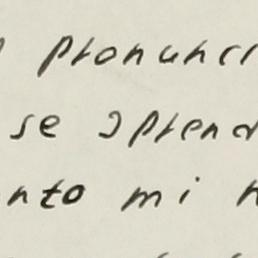 pronunci
se aprend
nto mi